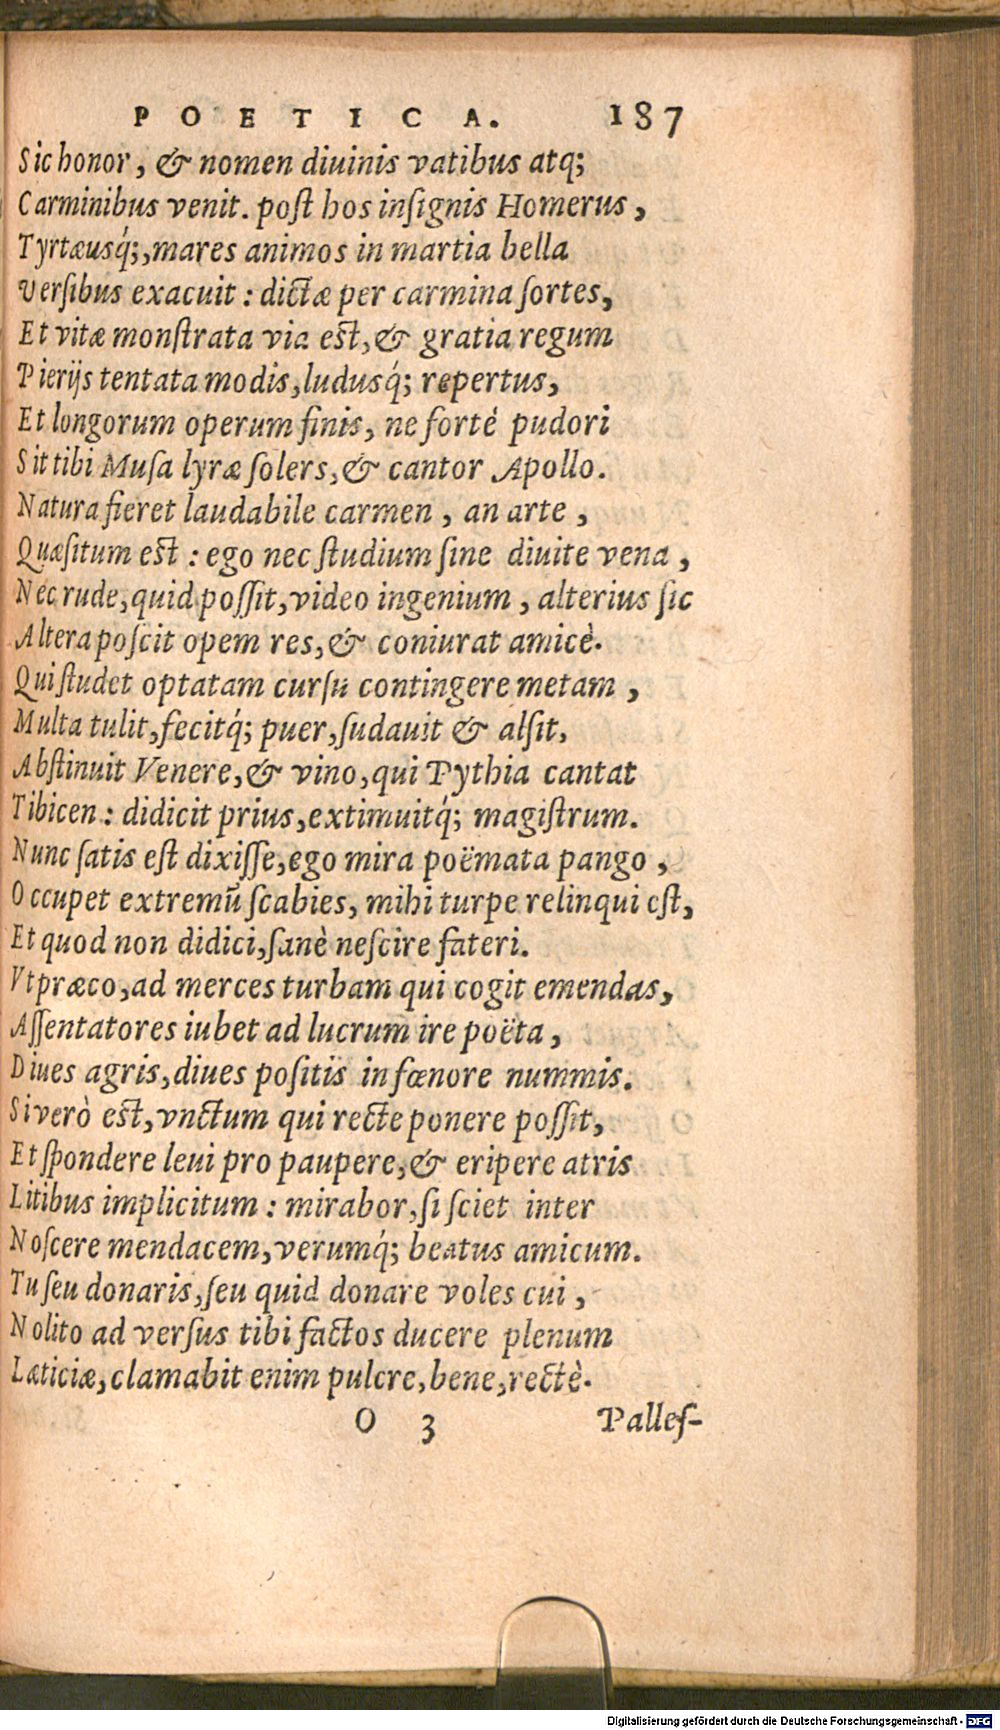 POETICA. 187
Sic honor, & nomen diuinis vatibus atq;
Carminibus venit. poſt hos inſignis Homerus,
Tyrtæusq́;, mares animos in martia bella
Verſibus exacuit: dictæ per carmina ſortes,
Et vitæ monſtrata via est, & gratia regum
Pierijs tentata modis, ludusq́; repertus,
Et longorum operum finis, ne fortè pudori
Sit tibi Muſa lyræ ſolers, & cantor Apollo.
Natura fieret laudabile carmen, an arte,
Quæſitum est: ego nec ſtudium ſine diuite vena,
Nec rude, quid poſſit, video ingenium, alterius ſic
Altera poſcit opem res, & coniurat amicè.
Qui ſtudet optatam curſū contingere metam,
Multa tulit, fecitq́; puer, ſudauit & alſit,
Abſtinuit Venere, & vino, qui Pythia cantat
Tibicen: didicit prius, extimuitq́; magiſtrum.
Nunc ſatis eſt dixiſſe, ego mira poëmata pango,
Occupet extremū ſcabies, mihi turpe relinqui eſt,
Et quod non didici, ſanè neſcire fateri.
Vt præco, ad merces turbam qui cogit emendas,
Aſſentatores iubet ad lucrum ire poëta,
Diues agris, diues poſitis in fœnore nummis.
Si verò est, vnctum qui recte ponere poſſit,
Et ſpondere leui pro paupere, & eripere atris
Litibus implicitum: mirabor, ſi ſciet inter
Noſcere mendacem, verumq́; beatus amicum.
Tu ſeu donaris, ſeu quid donare voles cui,
Nolito ad verſus tibi factos ducere plenum
Læticiæ, clamabit enim pulcre, bene, rectè.
O 3 Palleſ-
Digitalisierung gefördert durch die Deutsche Forschungsgemeinschaft - DFG